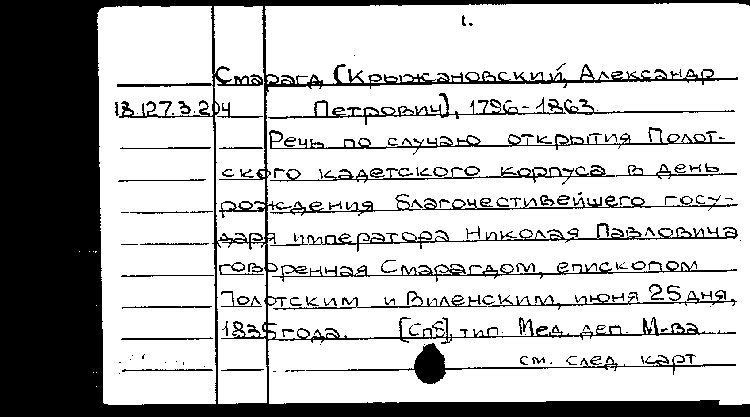 1.
Смарагд [Крыжановский, Александр
18.127.3.204 Петрович], 1796-1863
Речь по случаю открытия Полот-
ского кадетского корпуса в день
рождения благочестивейшего госу-
даря императора Николая Павловича
говоренная Смарагдом, епископом
Полотским и Виленским, июня 25 дня,
1835 года. [Спб], тип. Мед. деп. М-ва
см. след. карт